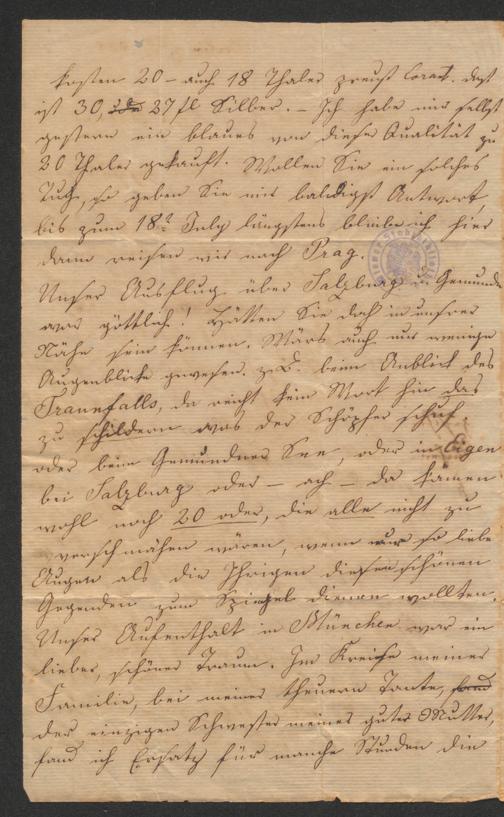 kosten 20 – auch 18 Thaler preuß Corant. daß
ist 30, oder 27 fl Silber. – Ich habe mir selbst
gestern ein blaues von dieser Qualität zu
20 Thaler gekauft. Wollen Sie ein solches
Tuch, so geben Sie mir baldigst Antwort,
bis zum 18t July längstens bleibe ich hier
dann reisen wir nach Prag.
Unser Ausflug über Salzburg, Gemunden
war göttlich! Hätten Sie doch in unsrer
Nähe sein können. Wärs auch nur wenige
Augenblicke gewesen. z. B. beim Anblick des
Traunfalls, da reicht kein Wort hin das
zu schildern was der Schöpfer schuf.
oder beim Gemundner See, oder in Eigen
bei Salzburg oder – ach – da kämen
wohl noch 20 oder, die alle nicht zu
verschmähen wären, wenn nur so liebe
Augen als die Ihrigen diesen schönen
Gegenden zum Spiegel dienen wollten.
Unser Aufenthalt in München war ein
lieber, schöner Traum. Im Kreise meiner
Familie, bei meiner theuern Tante, fand
der einzigen Schwester meiner guten Mutter,
fand ich Ersatz für manche Stunden die